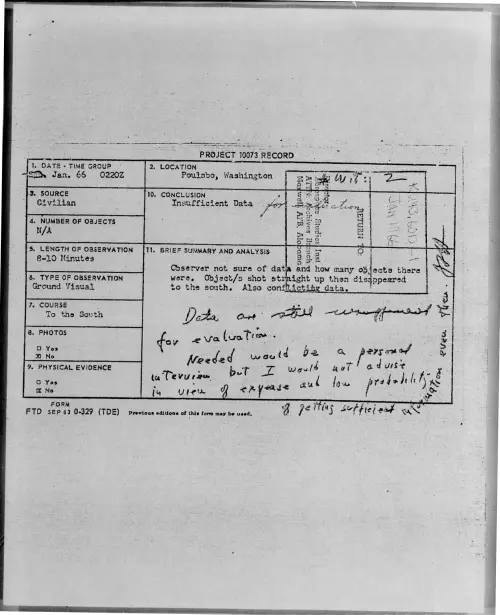 PROJECT 10073 RECORD
1. DATE - TIME GROUP
Jan. 66 0220Z
2. LOCATION
Poulsbo, Washington
# Wit: 2
3. SOURCE
Civilian
10. CONCLUSION
Insufficient Data for
4. NUMBER OF OBJECTS
N/A
RETURN TO:
Aerospace Studies Inst
ATTN: Archives Branch
Maxwell AFB, Alabama
5. LENGTH OF OBSERVATION
8-10 Minutes
11. BRIEF SUMMARY AND ANALYSIS
Observer not sure of data and how many objects there
were. Object/s shot straight up then disappeared
to the south. Also conflicting data.
6. TYPE OF OBSERVATION
Ground Visual
7. COURSE
To the South
8. PHOTOS
☐ Yes
☒ No
9. PHYSICAL EVIDENCE
☐ Yes
☒ No
Data are still
for evaluation.
Needed would be a personal
interview, but I would not advise
in view of expense and low probability
of getting sufficient information even then.
FORM
FTD SEP 63 0-329 (TDE) Previous editions of this form may be used.